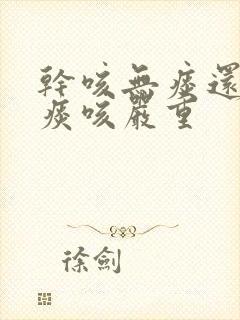 幹咳無痰還
痰咳嚴重
徐劍